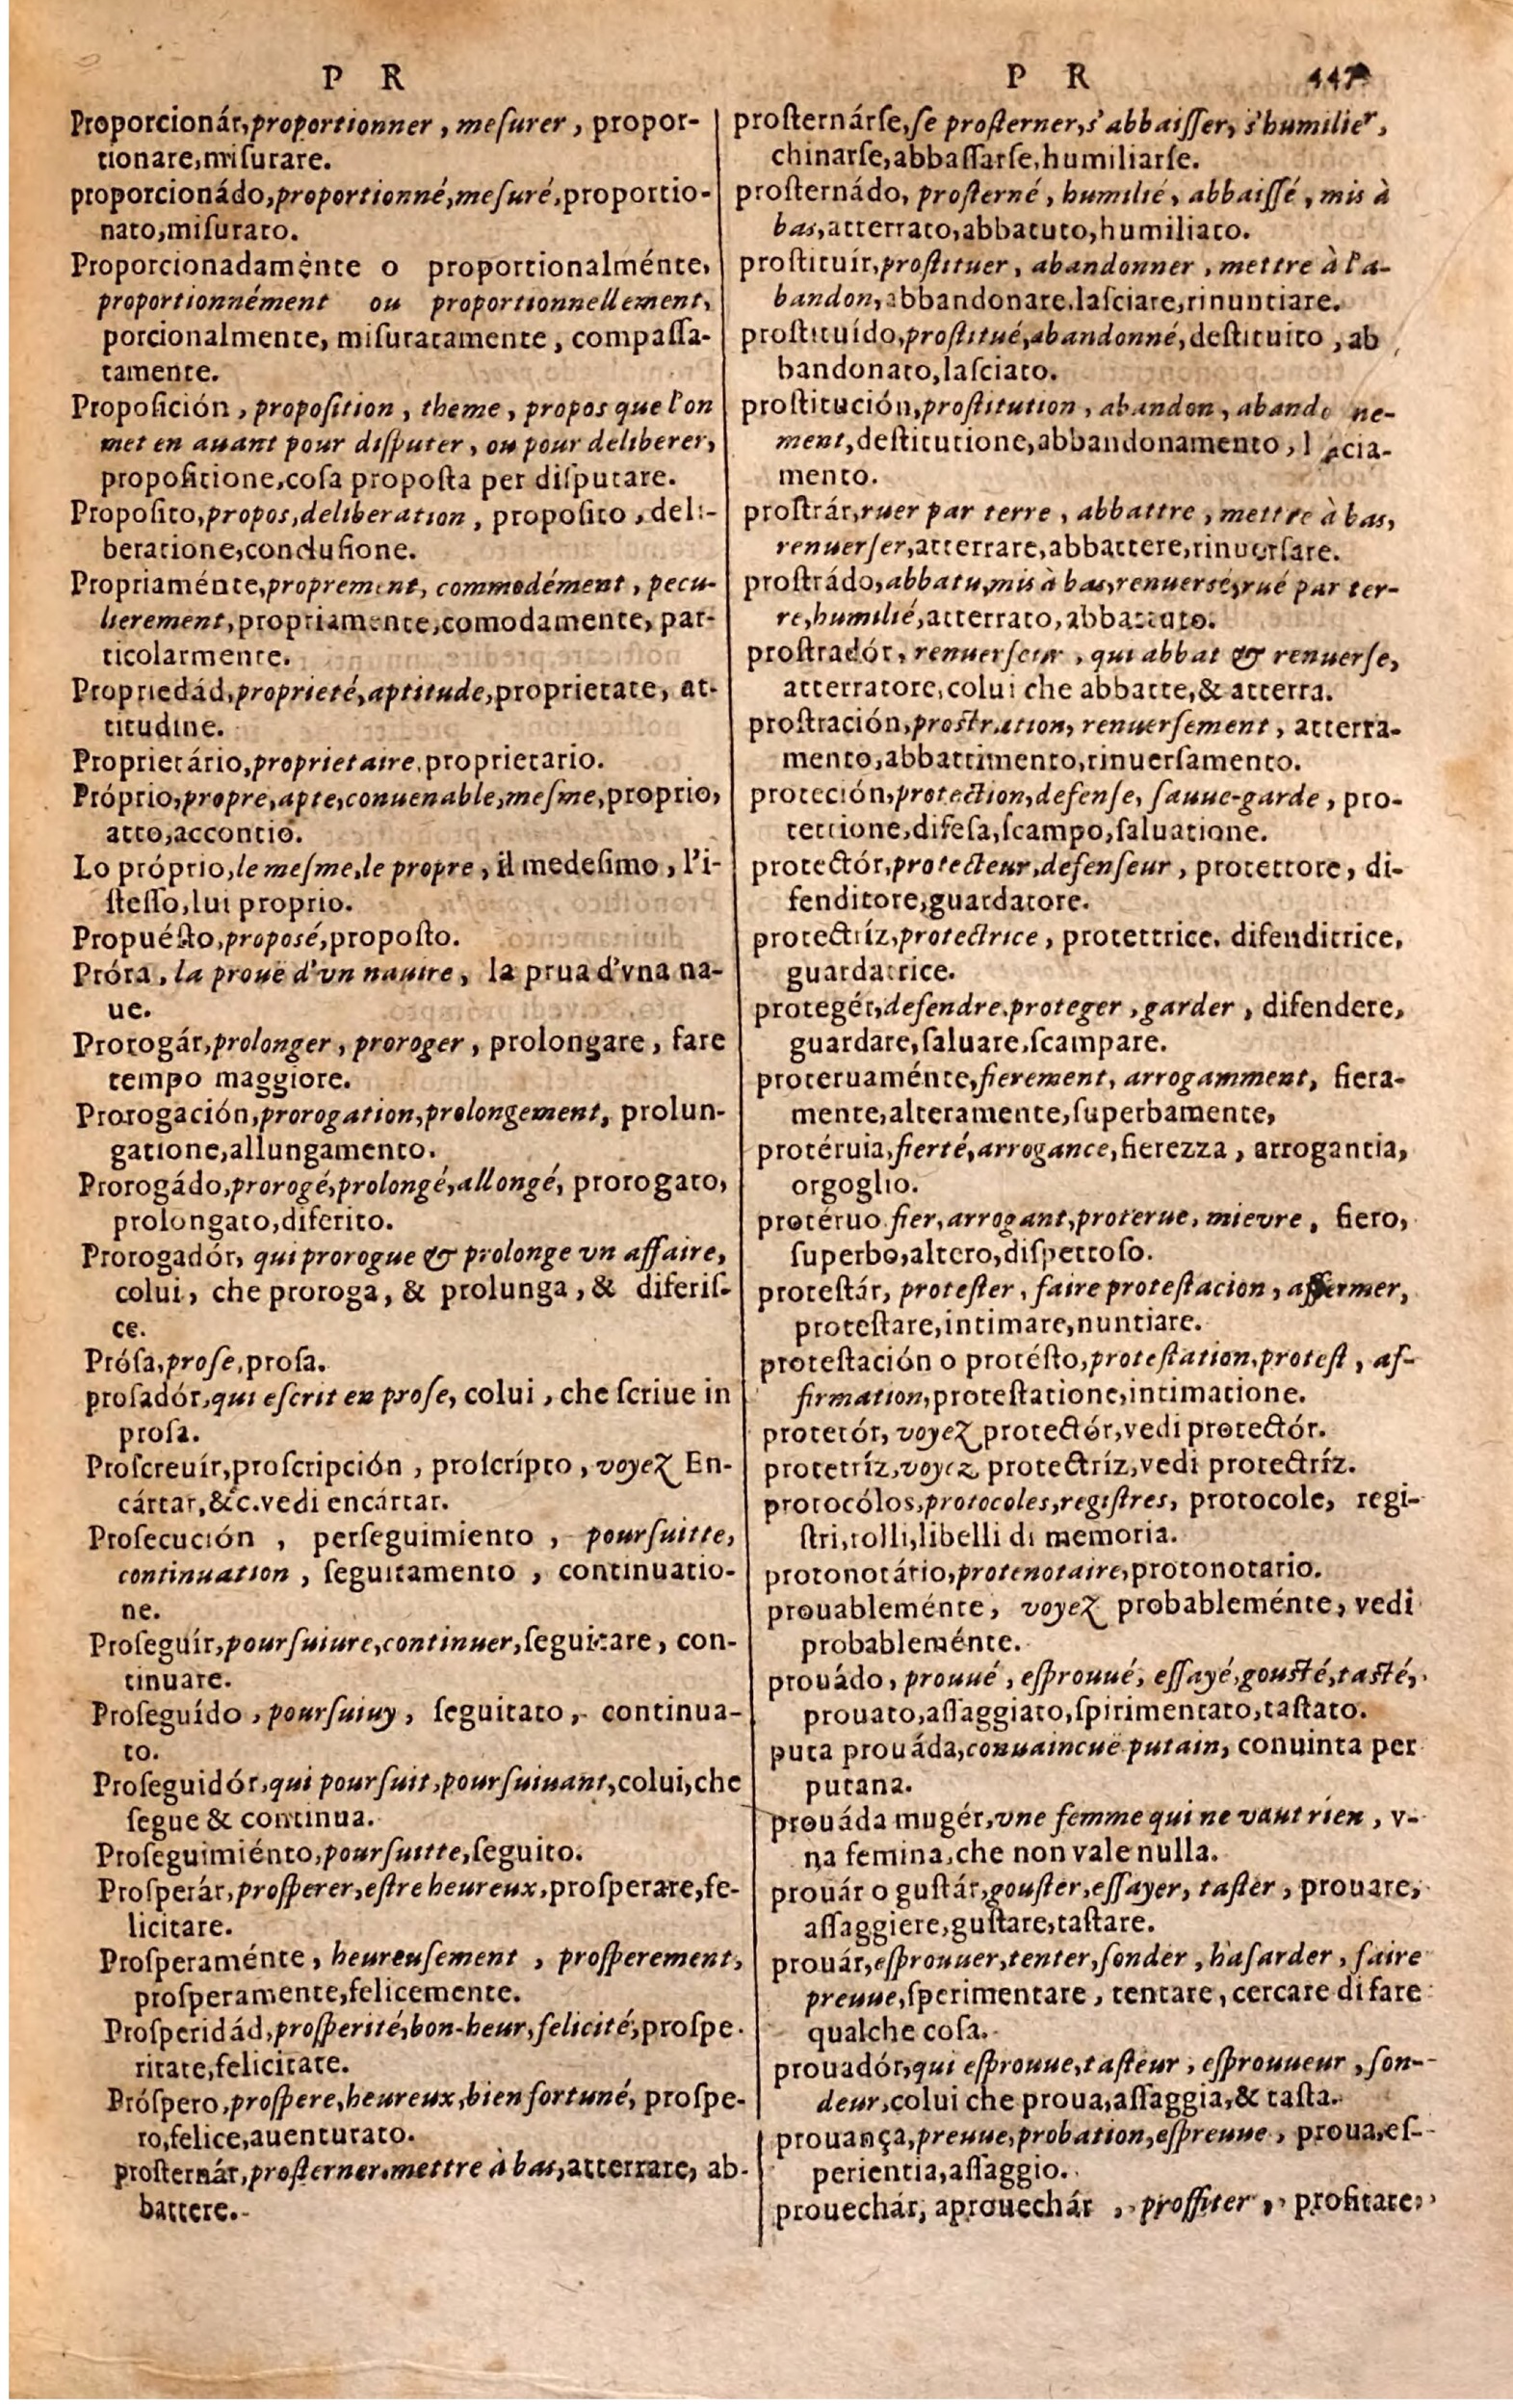 P R
Proporcionár,proportionner, meſurer, propor-
tionare,miſurare.
proporcionádo,proportionné,meſuré,proportio-
nato,miſurato.
Proporcionadaménte o proportionalménte,
proportionnément ou proportionnellement,
porcionalmente, miſuratamente, compaſſa-
tamente.
Propoſición, propoſition, theme, propos que l'on
met en auant pour diſputer, ou pour deliberer,
propoſitione,coſa propoſta per diſputare.
Propoſito,propos,deliberation, propoſito, deli-
beratione,concluſione.
Propriaménte,proprement, commodément, pecu-
lierement,propriamente,comodamente, par-
ticolarmente.
Propriedád,proprieté,aptitude,proprietate, at-
titudine.
Proprietário,proprietaire,proprietario.
Próprio,propre,apte,conuenable,meſme,proprio,
atto,acconcio.
Lo próprio,le meſme,le propre, il medeſimo, l'i-
ſteſſo,lui proprio.
Propuéſto,proposé,propoſto.
Próra, la prouë d'vn nauire, la prua d'vna na-
ue.
Prorogár,prolonger, proroger, prolongare, fare
tempo maggiore.
Prorogación,prorogation,prolongement, prolun-
gatione,allungamento.
Prorogádo,prorogé,prolongé,allongé, prorogato,
prolongato,diferito.
Prorogadór, qui prorogue & prolonge vn affaire,
colui, che proroga, & prolunga, & diferiſ-
ce.
Próſa,proſe,proſa.
proſadór,qui eſcrit en proſe, colui, che ſcriue in
proſa.
Proſcreuír,proſcripción, proſcrípto, voyez En-
cártar,&c.vedi encártar.
Proſecución, perſeguimiento, pourſuitte,
continuation, ſeguitamento, continuatio-
ne.
Proſeguír,pourſuiure,continuer,ſeguitare, con-
tinuare.
Proſeguído, pourſuiuy, ſeguitato, continua-
to.
Proſeguidór,qui pourſuit,pourſuiuant,colui,che
ſegue & continua.
Proſeguimiénto,pourſuitte,ſeguito.
Proſperár,proſperer,eſtre heureux,proſperare,fe-
licitare.
Proſperaménte, heureuſement, proſperement,
proſperamente,felicemente.
Proſperidád,proſperité,bon-heur,felicité,proſpe-
ritate,felicitate.
Próſpero,proſpere,heureux,bien fortuné, proſpe-
ro,felice,auenturato.
proſternár,proſterner,mettre à bas,atterrare, ab-
battere.
P R 447
proſternárſe,ſe proſterner,s'abbaiſſer, s'humilier,
chinarſe,abbaſſarſe,humiliarſe.
proſternádo, proſterné, humilié, abbaiſſé, mis à
bas,atterrato,abbatuto,humiliato.
proſtituír,proſtituer, abandonner, mettre à l'a-
bandon,abbandonare,laſciare,rinuntiare.
proſtituído,proſtitué,abandonné,deſtituito, ab
bandonato,laſciato.
proſtitución,proſtitution, abandon, abando ne-
ment,deſtitutione,abbandonamento, l ſcia-
mento.
proſtrár,ruer par terre, abbattre, mettre à bas,
renuerſer,atterrare,abbattere,rinuerſare.
proſtrádo,abbatu,mis à bas,renuersé,rué par ter-
re,humilié,atterrato,abbattuto.
proſtradór, renuerſeur, qui abbat & renuerſe,
atterratore,colui che abbatte,& atterra.
proſtración,proſtration, renuerſement, atterra-
mento,abbattimento,rinuerſamento.
proteción,protection,defenſe, ſauue-garde, pro-
tettione,difeſa,ſcampo,ſaluatione.
protectór,protecteur,defenſeur, protettore, di-
fenditore,guardatore.
protectríz,protectrice, protettrice, difenditrice,
guardatrice.
protegér,defendre,proteger, garder, difendere,
guardare,ſaluare,ſcampare.
proteruaménte,fierement, arrogamment, fiera-
mente,alteramente,ſuperbamente,
protéruia,fierté,arrogance,fierezza, arrogantia,
orgoglio.
protéruo fier,arrogant,proterue, mievre, fiero,
ſuperbo,altero,diſpettoſo.
proteſtár, proteſter, faire proteſtacion, affermer,
proteſtare,intimare,nuntiare.
proteſtación o protéſto,proteſtation,proteſt, af-
firmation,proteſtatione,intimatione.
protetór, voyez protectór,vedi protectór.
protetríz,voyez protectríz,vedi protectríz.
protocólos,protocoles,regiſtres, protocole, regi-
ſtri,rolli,libelli di memoria.
protonotário,protenotaire,protonotario.
prouableménte, voyez probableménte, vedi
probableménte.
prouádo, prouué, eſprouué, eſſayé,gouſté,taſté,
prouato,aſſaggiato,ſpirimentato,taſtato.
puta prouáda,conuaincuë putain, conuinta per
putana.
prouáda mugér,vne femme qui ne vaut rien, v-
na femina,che non vale nulla.
prouár o guſtár,gouſter,eſſayer, taſter, prouare,
aſſaggiere,guſtare,taſtare.
prouár,eſprouuer,tenter,ſonder, haſarder, faire
preuue,ſperimentare, tentare, cercare di fare
qualche coſa.
prouadór,qui eſprouue,taſteur, eſprouueur, ſon-
deur,colui che proua,aſſaggia,& taſta.
prouança,preuue,probation,eſpreuue, proua,eſ-
perientia,aſſaggio.
prouechár, aprouechár, proffiter, profitare,